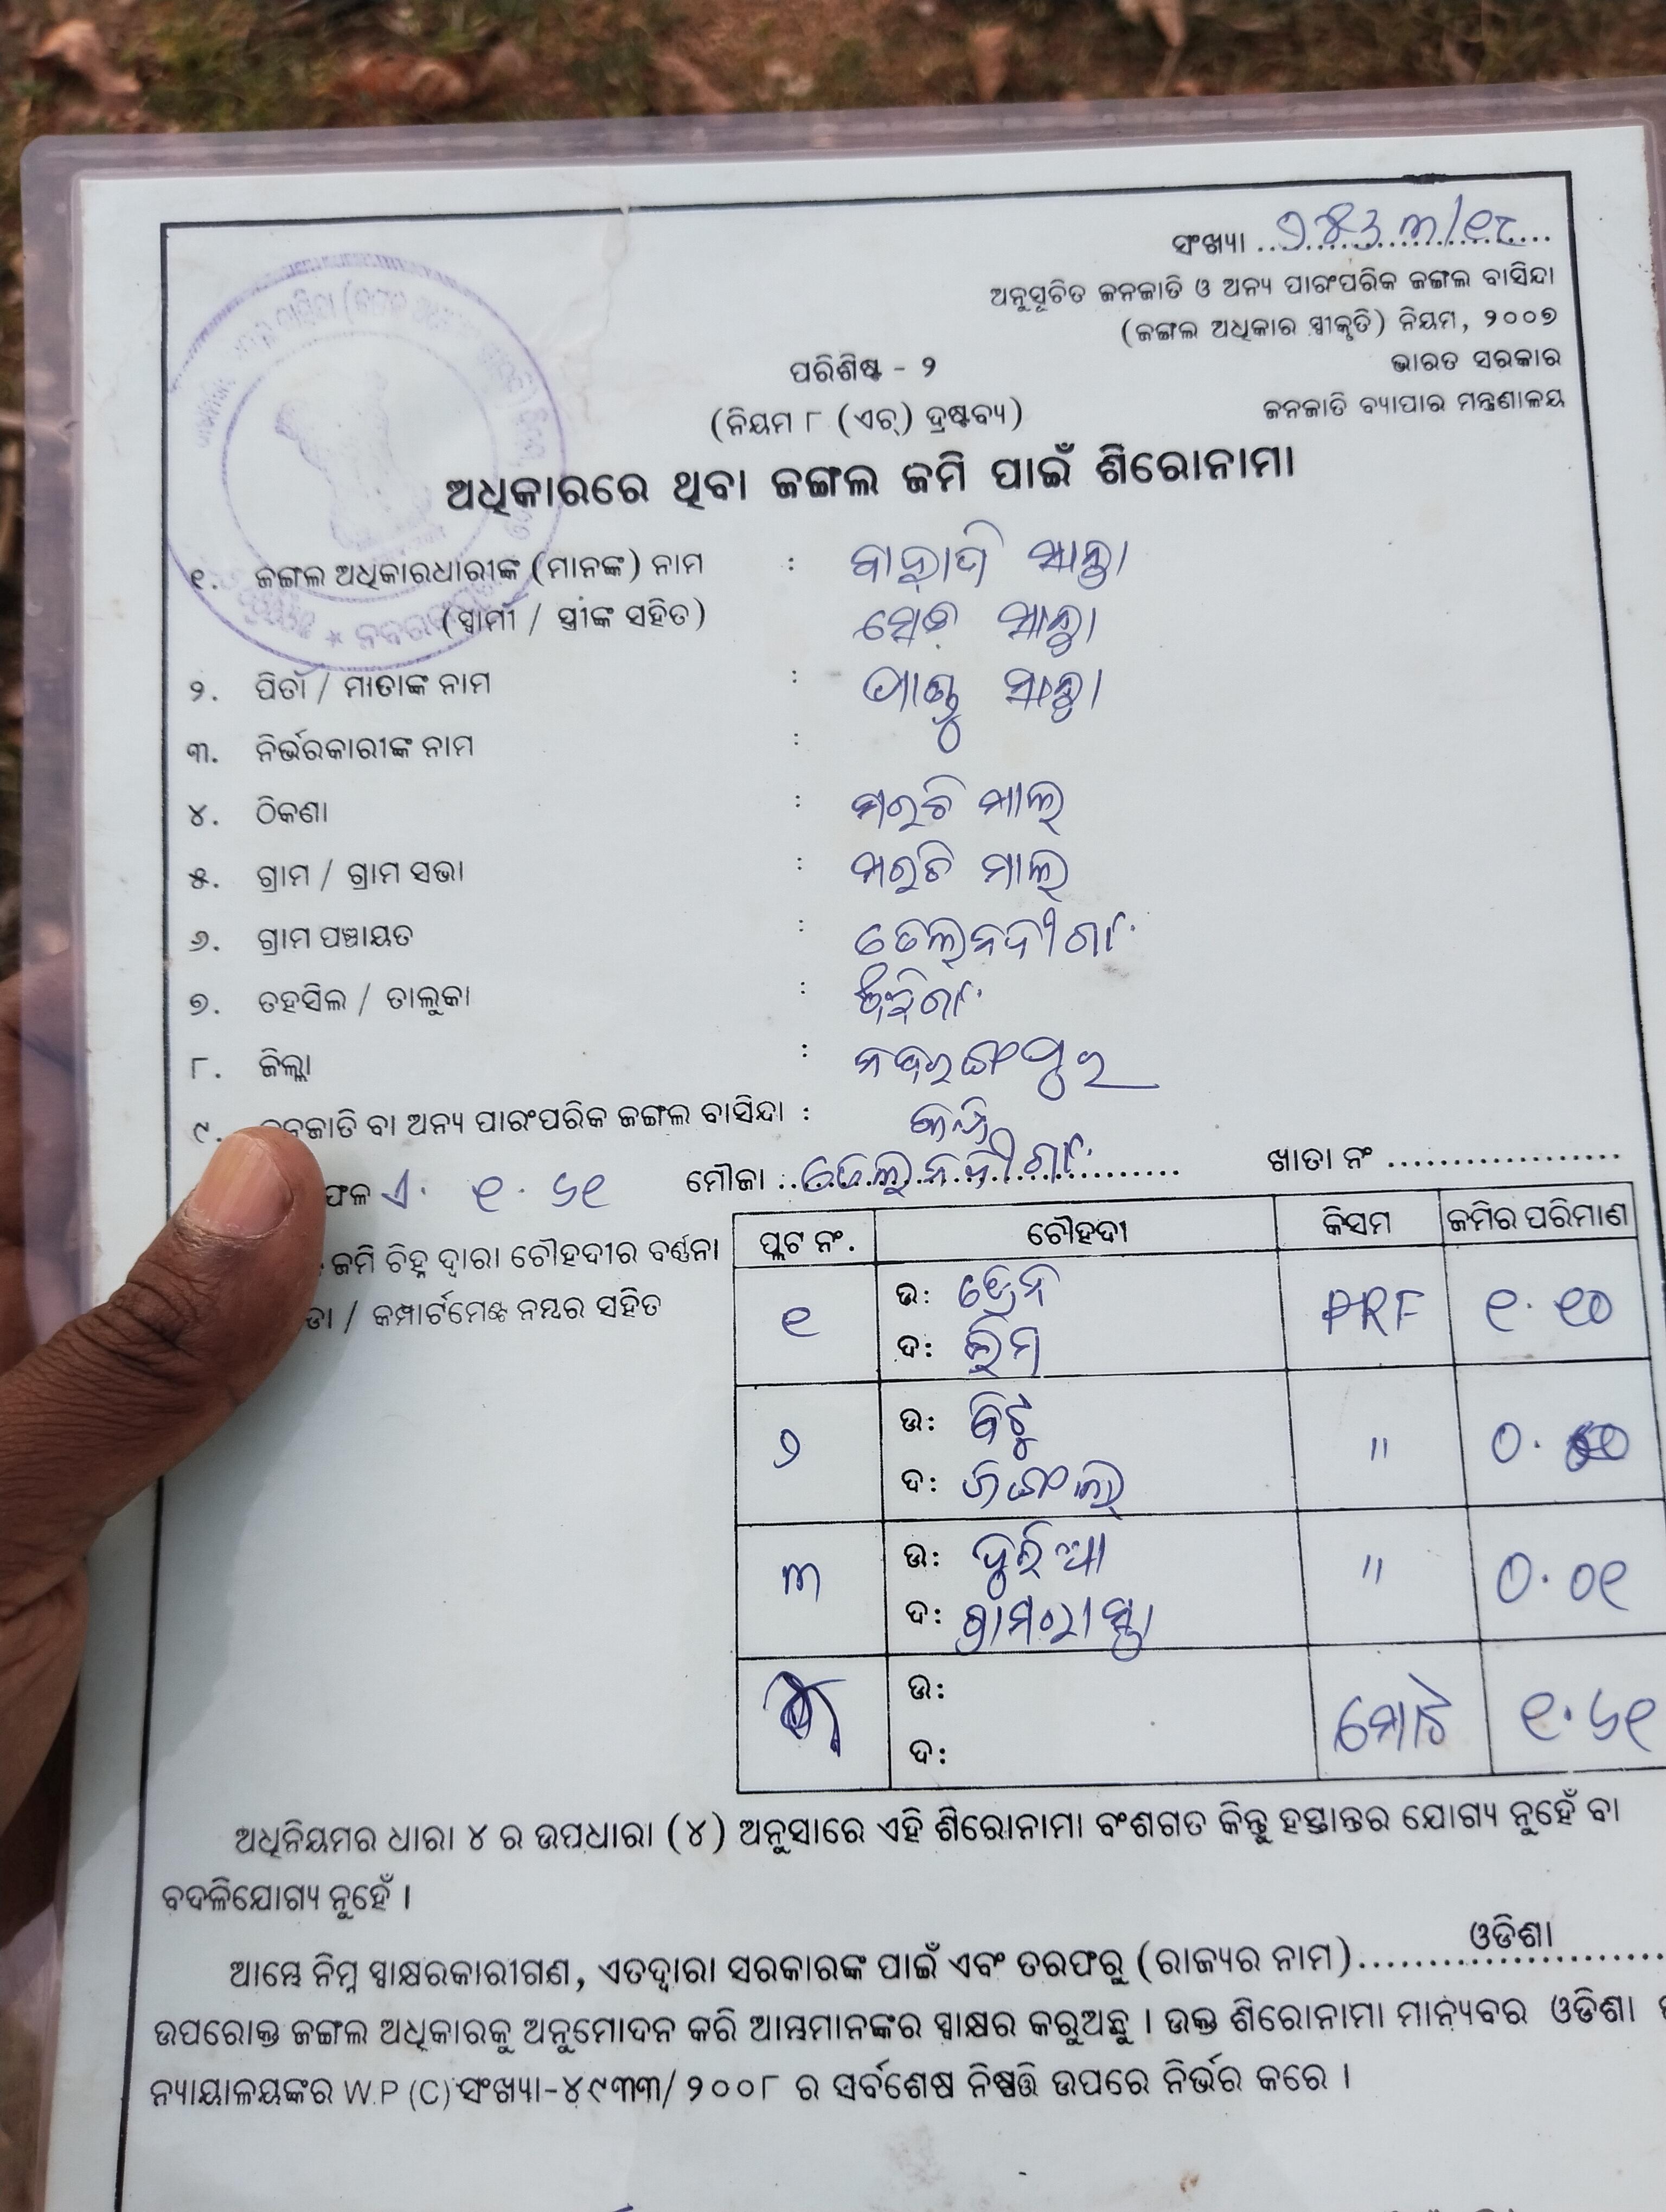 ସଂଖ୍ୟା ..................
ଅନୁସୂଚିତ ଜନଜାତି ଓ ଅନ୍ୟ ପାରଂପରିକ ଜଙ୍ଗଲ ବାସିନ୍ଦା
(ଜଙ୍ଗଲ ଅଧିକାର ସ୍ୱୀକୃତି) ନିୟମ, ୨୦୦୭
ଭାରତ ସରକାର
ଜନଜାତି ବ୍ୟାପାର ମନ୍ତ୍ରଣାଳୟ
ପରିଶିଷ୍ଟ - ୨
(ନିୟମ ୮ (ଏଚ୍) ଦ୍ରଷ୍ଟବ୍ୟ)
ଅଧିକାରରେ ଥିବା ଜଙ୍ଗଲ ଜମି ପାଇଁ ଶିରୋନାମା
୧. ଜଙ୍ଗଲ ଅଧିକାରଧାରୀଙ୍କ (ମାନଙ୍କ) ନାମ :
(ସ୍ୱାମୀ / ସ୍ତ୍ରୀଙ୍କ ସହିତ)
୨. ପିତା / ମାତାଙ୍କ ନାମ :
୩. ନିର୍ଭରକାରୀଙ୍କ ନାମ :
୪. ଠିକଣା : ମରଚି ମାଲ୍
୫. ଗ୍ରାମ / ଗ୍ରାମ ସଭା : ମରଚି ମାଲ୍
୬. ଗ୍ରାମ ପଞ୍ଚାୟତ : ତେଲନଦୀଗାଁ
୭. ତହସିଲ / ତାଲୁକା : ଝରିଗାଁ
୮. ଜିଲ୍ଲା : ନବରଙ୍ଗପୁର
୯. ଜନଜାତି ବା ଅନ୍ୟ ପାରଂପରିକ ଜଙ୍ଗଲ ବାସିନ୍ଦା :
ଫଳ ଏ. ୧.୬୧ ମୌଜା ..ତେଲନଦୀଗାଁ.. ଖାତା ନଂ ..................
ଜମି ଚିହ୍ନ ଦ୍ୱାରା ଚୌହଦୀର ବର୍ଣ୍ଣନା
/ କମ୍ପାର୍ଟମେଣ୍ଟ ନମ୍ବର ସହିତ
ପ୍ଲଟ ନଂ. ଚୌହଦୀ କିସମ ଜମିର ପରିମାଣ
୧ ଉ: PRF ୧.୧୦
ଦ: ଲିମ
୨ ଉ: ବିଟୁ " ୦.୫୦
ଦ: ଜଙ୍ଗଲ୍
୩ ଉ: ଦୁରିଆ " ୦.୦୧
ଦ: ଗ୍ରାମରାସ୍ତା
ଉ: ମୋଟ ୧.୬୧
ଦ:
ଅଧିନିୟମର ଧାରା ୪ ର ଉପଧାରା (୪) ଅନୁସାରେ ଏହି ଶିରୋନାମା ବଂଶଗତ କିନ୍ତୁ ହସ୍ତାନ୍ତର ଯୋଗ୍ୟ ନୁହେଁ ବା
ବଦଳିଯୋଗ୍ୟ ନୁହେଁ ।
ଆମ୍ଭେ ନିମ୍ନ ସ୍ୱାକ୍ଷରକାରୀଗଣ, ଏତଦ୍ୱାରା ସରକାରଙ୍କ ପାଇଁ ଏବଂ ତରଫରୁ (ରାଜ୍ୟର ନାମ)........ଓଡିଶା........
ଉପରୋକ୍ତ ଜଙ୍ଗଲ ଅଧିକାରକୁ ଅନୁମୋଦନ କରି ଆମ୍ଭମାନଙ୍କର ସ୍ୱାକ୍ଷର କରୁଅଛୁ । ଉକ୍ତ ଶିରୋନାମା ମାନ୍ୟବର ଓଡିଶା
ନ୍ୟାୟାଳୟଙ୍କର W.P (C) ସଂଖ୍ୟା-୪୯୩୩/ ୨୦୦୮ ର ସର୍ବଶେଷ ନିଷ୍ପତ୍ତି ଉପରେ ନିର୍ଭର କରେ ।